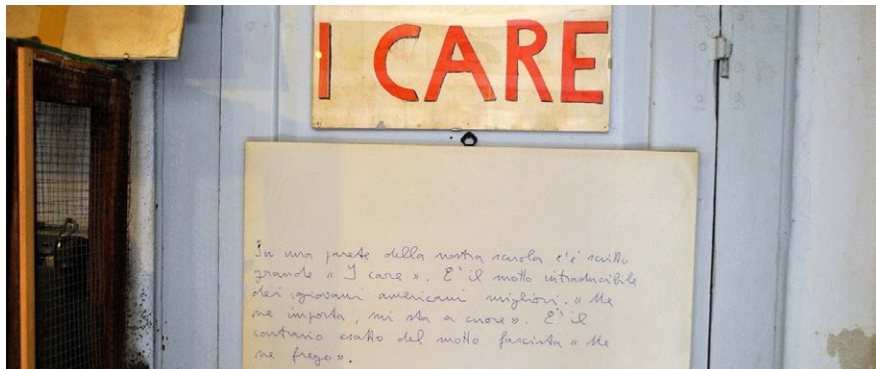 I CARE
Su una parete della nostra scuola c'è scritto
grande « I care ». E' il motto intraducibile
dei giovani americani migliori. « Me
ne importa, mi sta a cuore ». E' il
contrario esatto del motto fascista « Me
ne frego ».